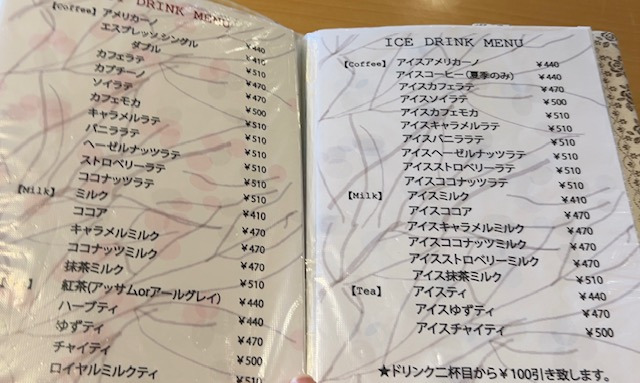 DRINK MENU
【Coffee】アメリカーノ ¥440
エスプレッソ シングル ¥410
ダブル ¥510
カフェラテ ¥470
カプチーノ ¥470
ソイラテ ¥500
カフェモカ ¥510
キャラメルラテ ¥510
バニララテ ¥510
ヘーゼルナッツラテ ¥510
ストロベリーラテ ¥510
ココナッツラテ ¥510
【Milk】 ミルク ¥410
ココア ¥470
キャラメルミルク ¥470
ココナッツミルク ¥470
抹茶ミルク ¥510
紅茶(アッサムorアールグレイ) ¥440
ハーブティ ¥440
ゆずティ ¥470
チャイティ ¥500
ロイヤルミルクティ ¥510
ICE DRINK MENU
【Coffee】アイスアメリカーノ ¥440
アイスコーヒー(夏季のみ) ¥440
アイスカフェラテ ¥470
アイスソイラテ ¥500
アイスカフェモカ ¥510
アイスキャラメルラテ ¥510
アイスバニララテ ¥510
アイスヘーゼルナッツラテ ¥510
アイスストロベリーラテ ¥510
アイスココナッツラテ ¥510
【Milk】 アイスミルク ¥410
アイスココア ¥470
アイスキャラメルミルク ¥470
アイスココナッツミルク ¥470
アイスストロベリーミルク ¥470
アイス抹茶ミルク ¥510
【Tea】 アイスティ ¥440
アイスゆずティ ¥470
アイスチャイティ ¥500
★ドリンク二杯目から¥100引き致します。